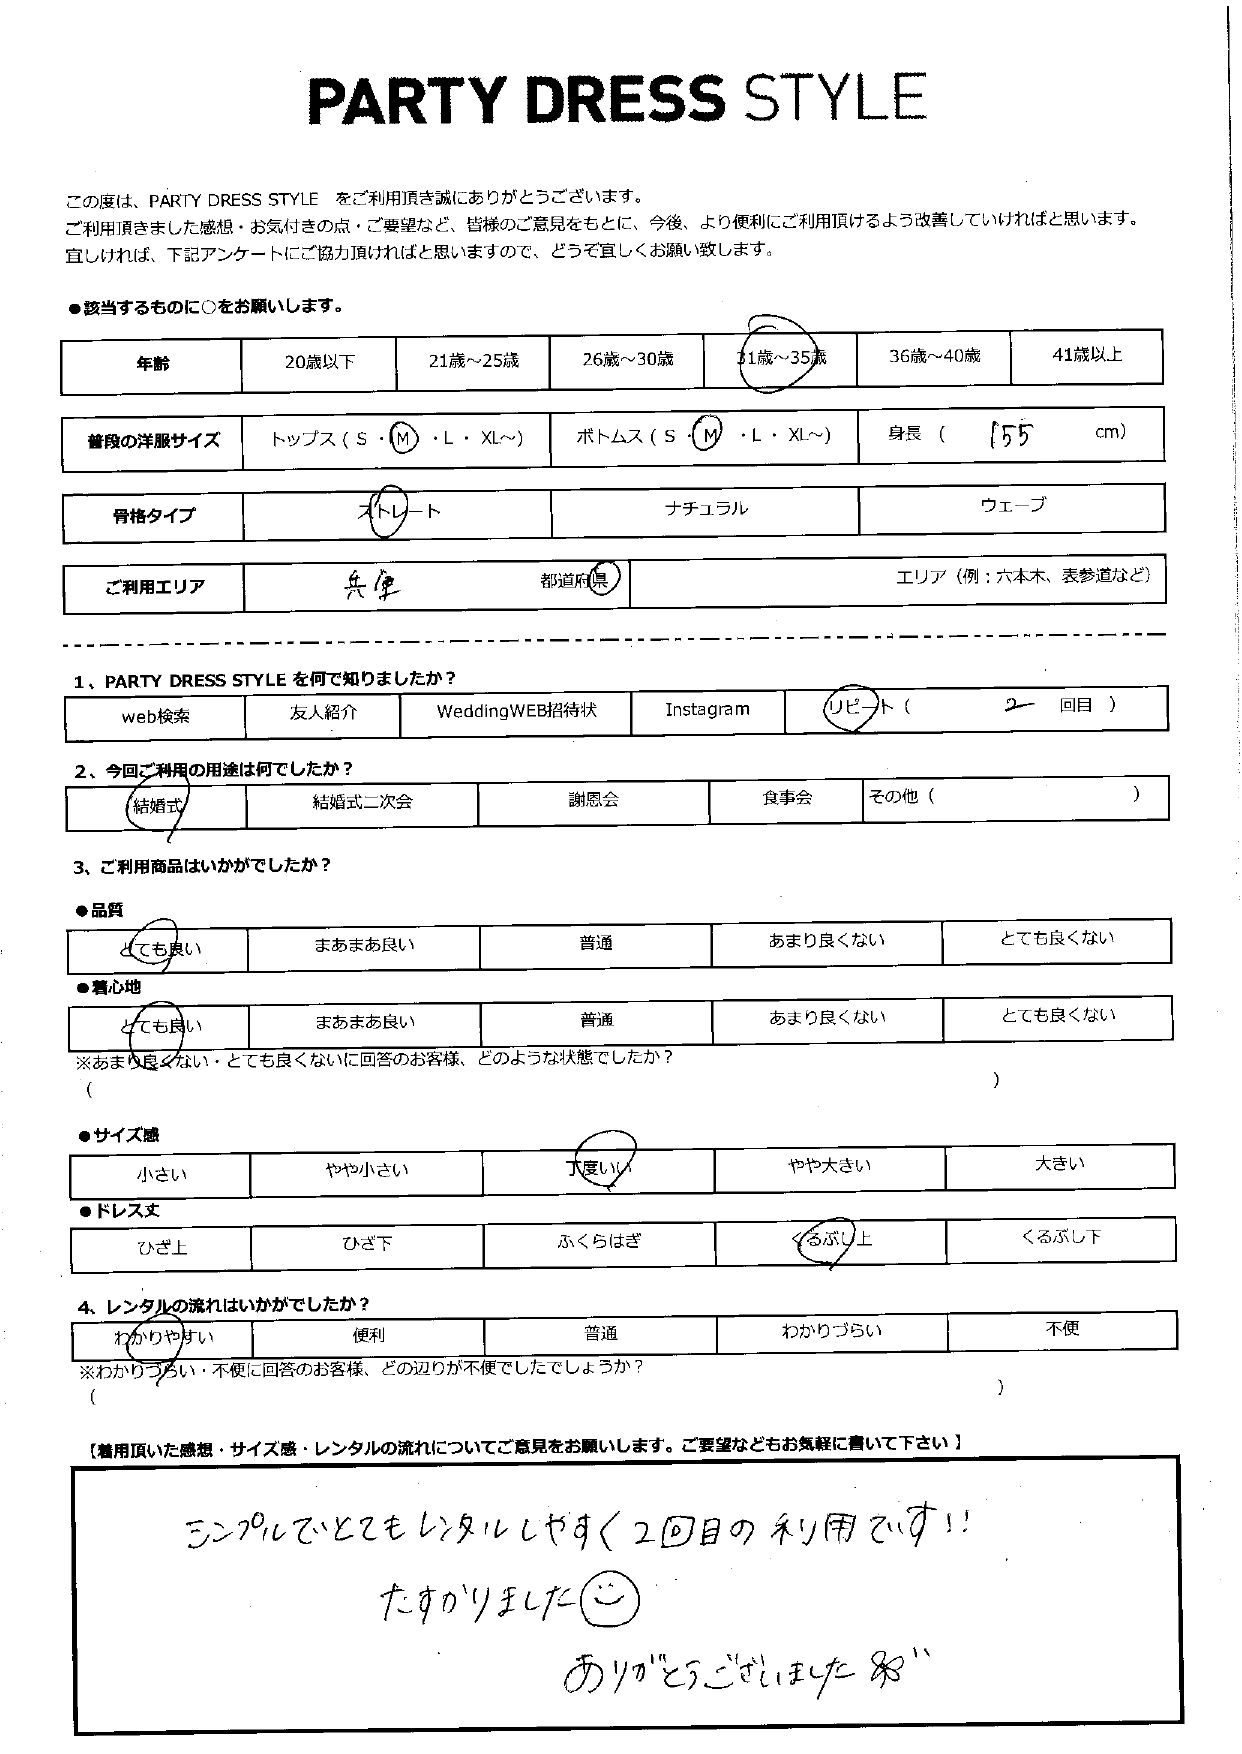 PARTY DRESS STYLE
この度は、PARTY DRESS STYLE をご利用頂き誠にありがとうございます。
ご利用頂きました感想・お気付きの点・ご要望など、皆様のご意見をもとに、今後、より便利にご利用頂けるよう改善していければと思います。
宜しければ、下記アンケートにご協力頂ければと思いますので、どうぞ宜しくお願い致します。
●該当するものに○をお願いします。
年齢 20歳以下 21歳～25歳 26歳～30歳 31歳～35歳 36歳～40歳 41歳以上
普段の洋服サイズ トップス ( S ・M ・L ・ XL～) ボトムス ( S ・M ・L ・ XL～) 身長 ( 155 cm)
骨格タイプ ストレート ナチュラル ウェーブ
ご利用エリア 兵庫 都道府県 エリア（例：六本木、表参道など）
1、PARTY DRESS STYLE を何で知りましたか？
web検索 友人紹介 WeddingWEB招待状 Instagram リピート ( 2 回目 )
2、今回ご利用の用途は何でしたか？
結婚式 結婚式二次会 謝恩会 食事会 その他 ( )
3、ご利用商品はいかがでしたか？
●品質
とても良い まあまあ良い 普通 あまり良くない とても良くない
●着心地
とても良い まあまあ良い 普通 あまり良くない とても良くない
※あまり良くない・とても良くないに回答のお客様、どのような状態でしたか？
( )
●サイズ感
小さい やや小さい 丁度いい やや大きい 大きい
●ドレス丈
ひざ上 ひざ下 ふくらはぎ くるぶし上 くるぶし下
4、レンタルの流れはいかがでしたか？
わかりやすい 便利 普通 わかりづらい 不便
※わかりづらい・不便に回答のお客様、どの辺りが不便でしたでしょうか？
( )
【着用頂いた感想・サイズ感・レンタルの流れについてご意見をお願いします。ご要望などもお気軽に書いて下さい】
シンプルでとてもレンタルしやすく2回目の利用です!!
たすかりました
ありがとうございました